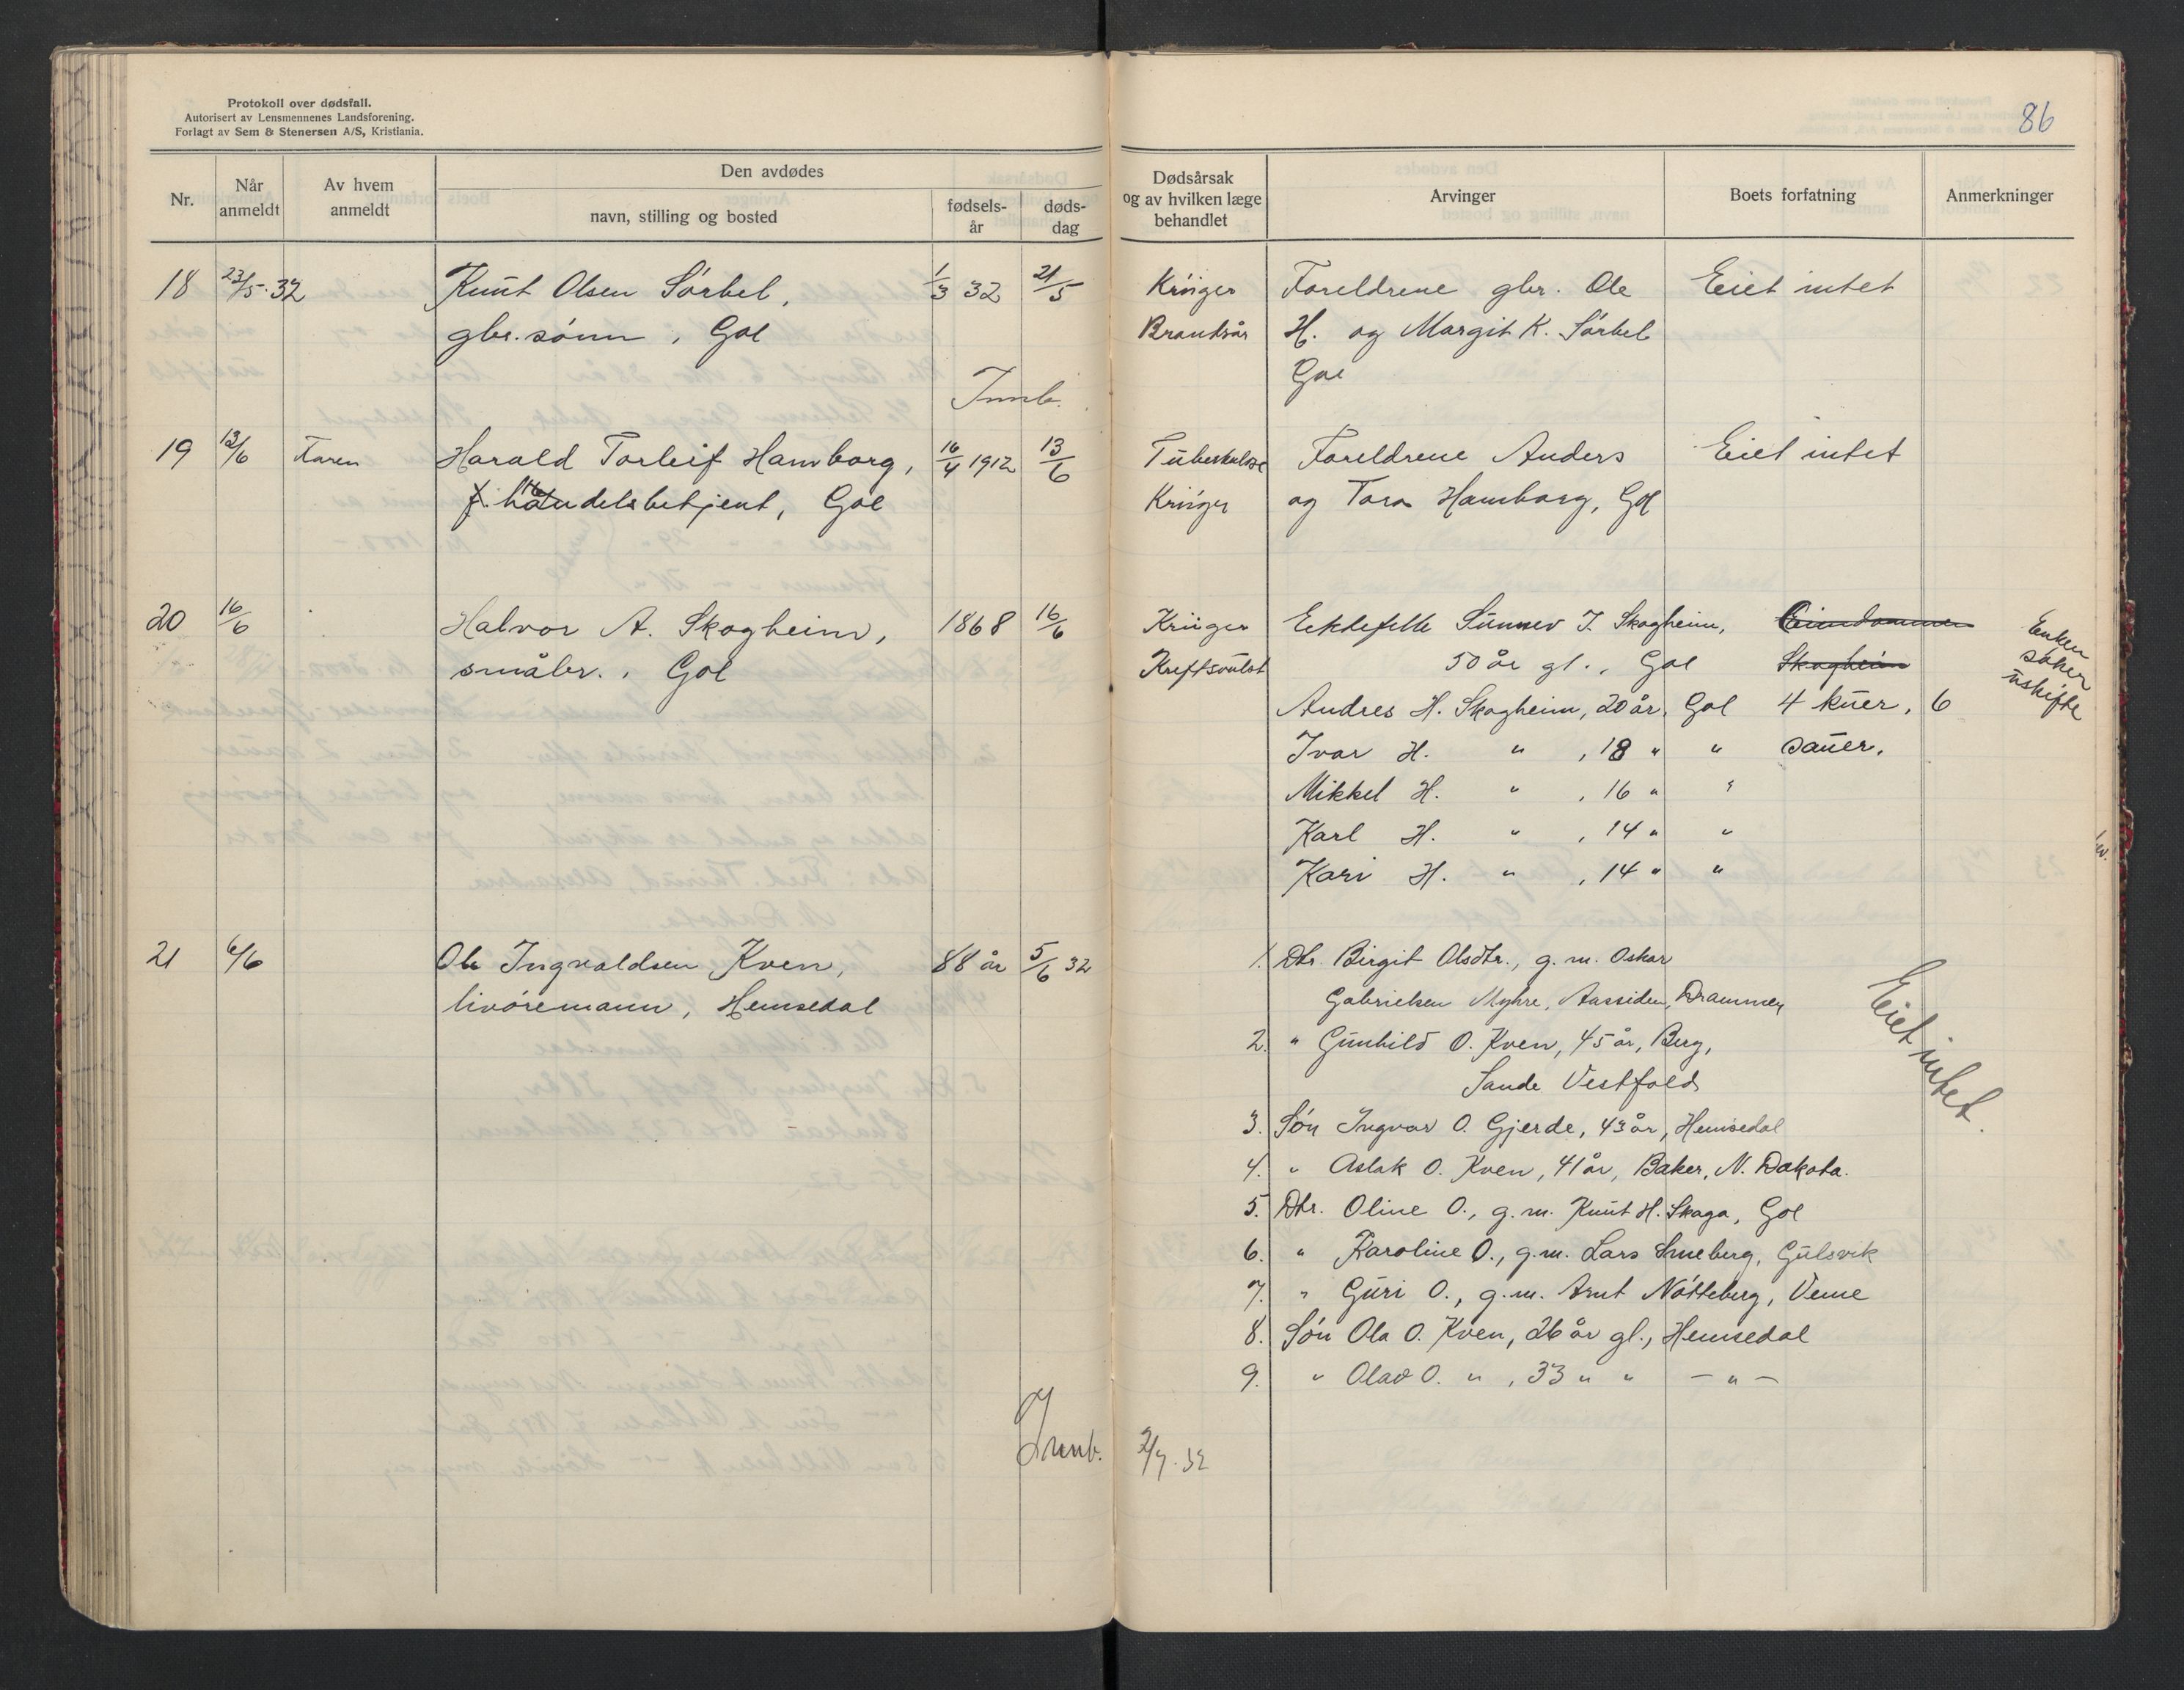 Protokoll over dødsfall.
Autorisert av Lensmennenes Landsforening.
Forlagt av Sem & Stenersen A/S, Kristiania.
86
Nr.
Når anmeldt
Av hvem anmeldt
Den avdødes
navn, stilling og bosted
fødsels-år
døds-dag
Dødsårsak og av hvilken læge behandlet
Arvinger
Boets forfatning
Anmerkninger
18 23/5-32 Knut Olsen Sørbel, 1/3 32 21/5 Krüger Foreldrene gbr. Ole Eiet intet
gbr.sønn, Gol Brandsår H. og Margit K. Sørbel
Gol
Innb.
19 13/6 Faren Harald Torleif Hamborg, 16/4 1912 13/6 Tuberkulose Foreldrene Anders Eiet intet
handelsbetjent, Gol Krüger og Tora Hamborg, Gol
20 16/6 Halvor A. Skogheim, 1868 16/6 Krüger Ektefelle Sunnev J. Skogheim, Eiendommen Enken
småbr., Gol Kreftsvulst 50 år gl., Gol Skogheim søker
Andres H. Skogheim, 20 år, Gol 4 kuer, 6 uskifte
Ivar H. " , 18 " " sauer.
Mikkel H. " , 16 " "
Karl H. " , 14 " "
Kari H. " , 14 " "
21 6/6 Ole Ingvaldsen Kven, 88 år 5/6 32 1. Dtr. Birgit Olsdtr., g. m. Oskar
livøremann, Hemsedal Gabrielsen Myhre, Aassiden, Drammen
Eiet intet.
2. " Gunhild O. Kven, 45 år, Berg,
Sande Vestfold
3. Søn Ingvar O. Gjerde, 43 år, Hemsedal
4. " Aslak O. Kven, 41 år, Baker, N. Dakota.
5. Dtr. Oline O., g. m. Knut H. Skaga, Gol
6. " Karoline O., g. m. Lars Smeberg, Gulsvik
7. " Guri O., g. m. Arnt Nøtteberg, Veme
8. Søn Ola O. Kven, 26 år gl., Hemsedal
9. " Olav O. " , 33 " " - " -
Innb. 2/7-32